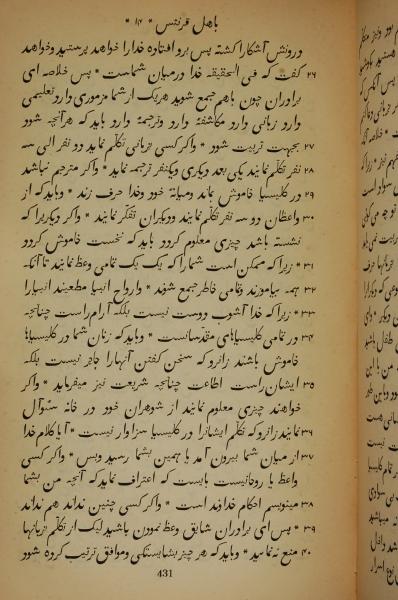 باهل قرنتس * ۱۴ *
درونش آشکارا گشته پس برو افتاده خدارا خواهد پرستید و خواهد
۲۶ گفت که فی الحقیقه خدا درمیان شماست * پس خلاصه ای
برادران چون باهم جمع شوید هریک از شما مزموری دارد تعلیمی
دارد زبانی دارد مکاشفهٔ دارد وترجمهٔ دارد باید که هرآنچه شود
۲۷ بجهت تربیت شود * واگر کسی بزبانی تکلّم نماید دو نفر الی سه
۲۸ نفر تکلّم نمایند یکی بعد دیگری ویکنفر ترجمه نماید * واگر مترجم نباشد
۲۹ در کلیسیا خاموش ماند ومیانهٔ خود وخدا حرف زند * وباید که از
۳۰ واعظان دو سه نفر تکلّم نمایند ودیگران تفکّر نمایند * واگر دیگریرا که
نشسته باشد چیزی معلوم گردد باید که نخست خاموش گردد
۳۱ * زیرا که ممکن است شمارا که یک یک تمامی وعظ نمایند تا آنکه
۳۲ همه بیاموزند وتمامی خاطر جمع شوند * وارواح انبیا مطیعند انبیارا
۳۳ * زیرا که خدا آشوب دوست نیست بلکه آرام راست چنانچه
۳۴ در تمامی کلیسیاهای مقدّسانست * وباید که زنان شما در کلیسیاها
خاموش باشند زانرو که سخن گفتن آنهارا جائز نیست بلکه
۳۵ ایشان راست اطاعت چنانچه شریعت نیز میفرماید * واگر
خواهند چیزی معلوم نمایند از شوهران خود در خانه سئوال
۳۶ نمایند زانرو که تکلّم ایشانرا در کلیسیا سزاوار نیست * آیا کلام خدا
۳۷ از میان شما بیرون آمد یا همین بشما رسید وبس * واگر کسی
واعظ یا روحانیست بایست که اعتراف نماید که آنچه من بشما
۳۸ مینویسم احکام خداوند است * واگر کسی چنین نداند هم نداند
۳۹ * پس ای برادران شایق وعظ نمودن باشید لیک از تکلّم بزبانها
۴۰ منع نه نمایید * وباید که هر چیز بشایستگی وموافق ترتیب کرده شود
431